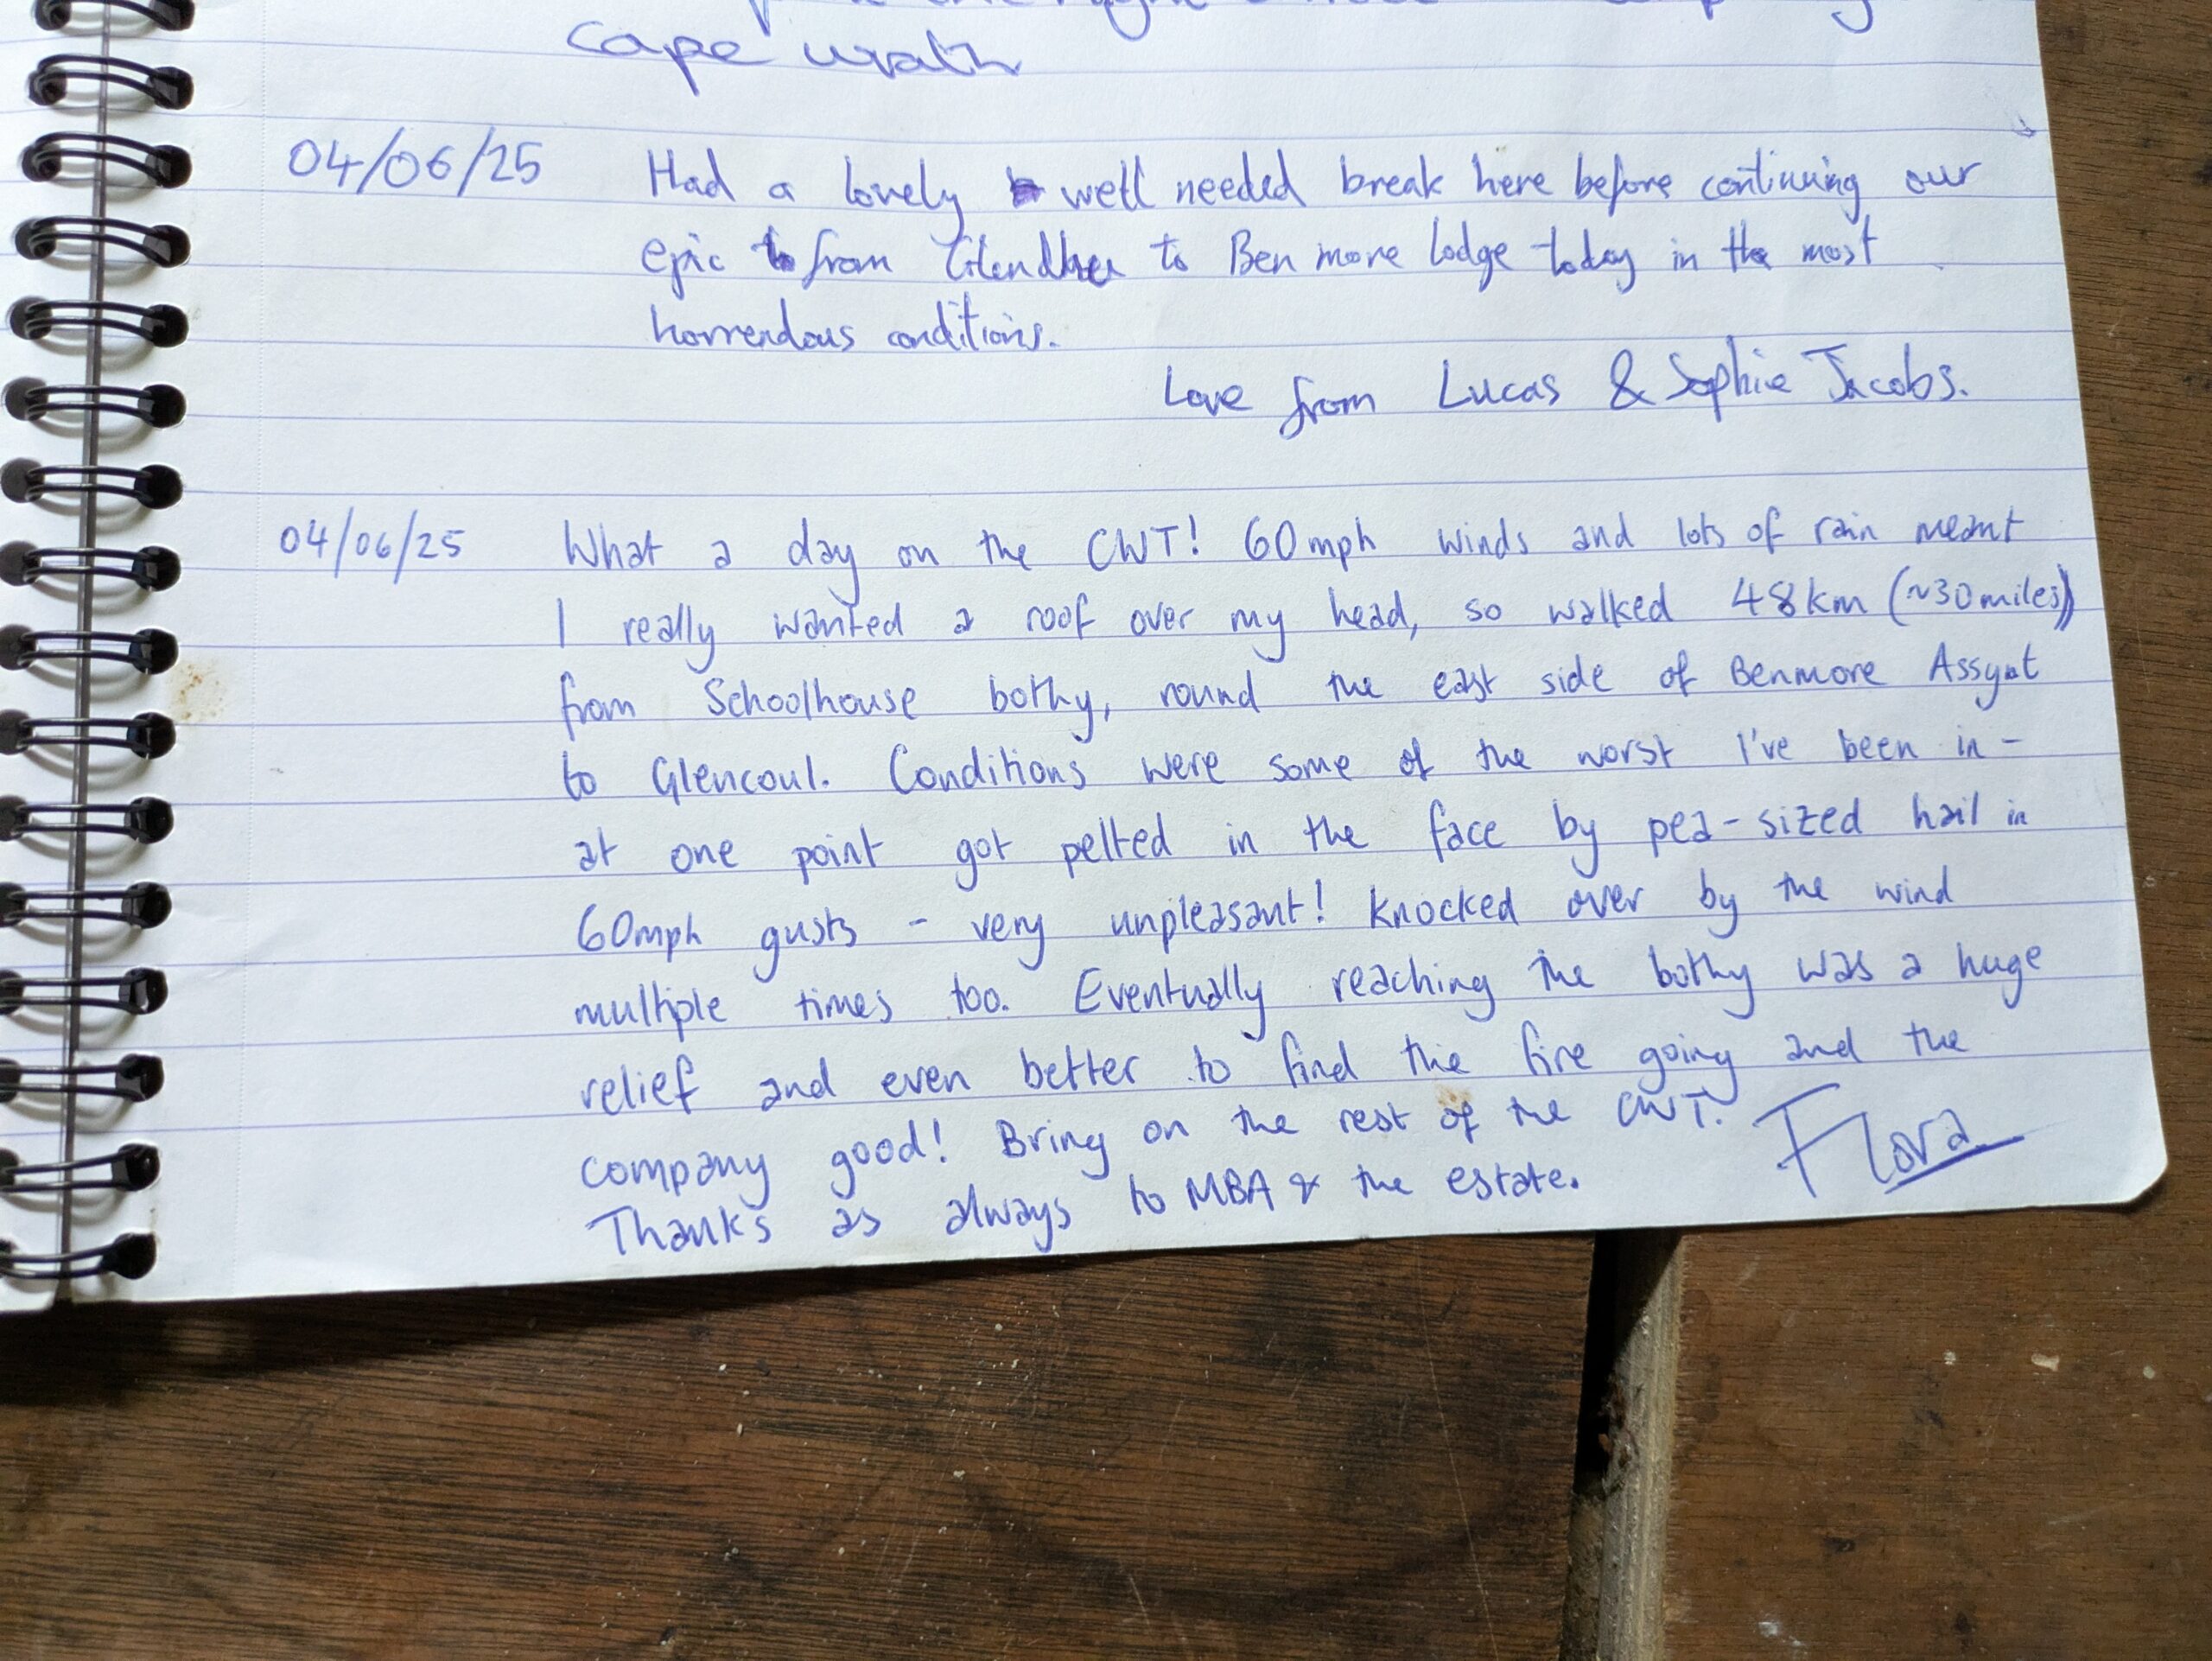 Cape Wrath
04/06/25 Had a lovely well needed break here before continuing our
epic from Glendhu to Ben more lodge today in the most
horrendous conditions.
Love from Lucas & Sophie Jacobs.
04/06/25 What a day on the CWT! 60mph winds and lots of rain meant
I really wanted a roof over my head, so walked 48km (~30miles)
from Schoolhouse bothy, round the east side of Benmore Assynt
to Glencoul. Conditions were some of the worst I've been in -
at one point got pelted in the face by pea-sized hail in
60mph gusts - very unpleasant! Knocked over by the wind
multiple times too. Eventually reaching the bothy was a huge
relief and even better to find the fire going and the
company good! Bring on the rest of the CWT.
Thanks as always to MBA & the estate. Flora